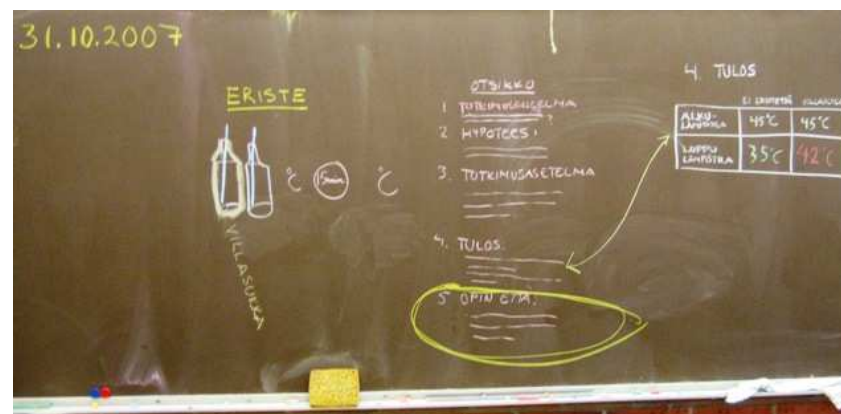 31.10.2007
ERISTE
°C 15min °C
VILLASUKKA
OTSIKKO
1 TUTKIMUSONGELMA
?
2 HYPOTEESI
3. TUTKIMUSASETELMA
4. TULOS
5 OPIN ETTÄ:
4. TULOS
VILLASUKKA
ALKU-
LÄMPÖTILA 45°C 45°C
LOPPU
LÄMPÖTILA 35°C 42°C